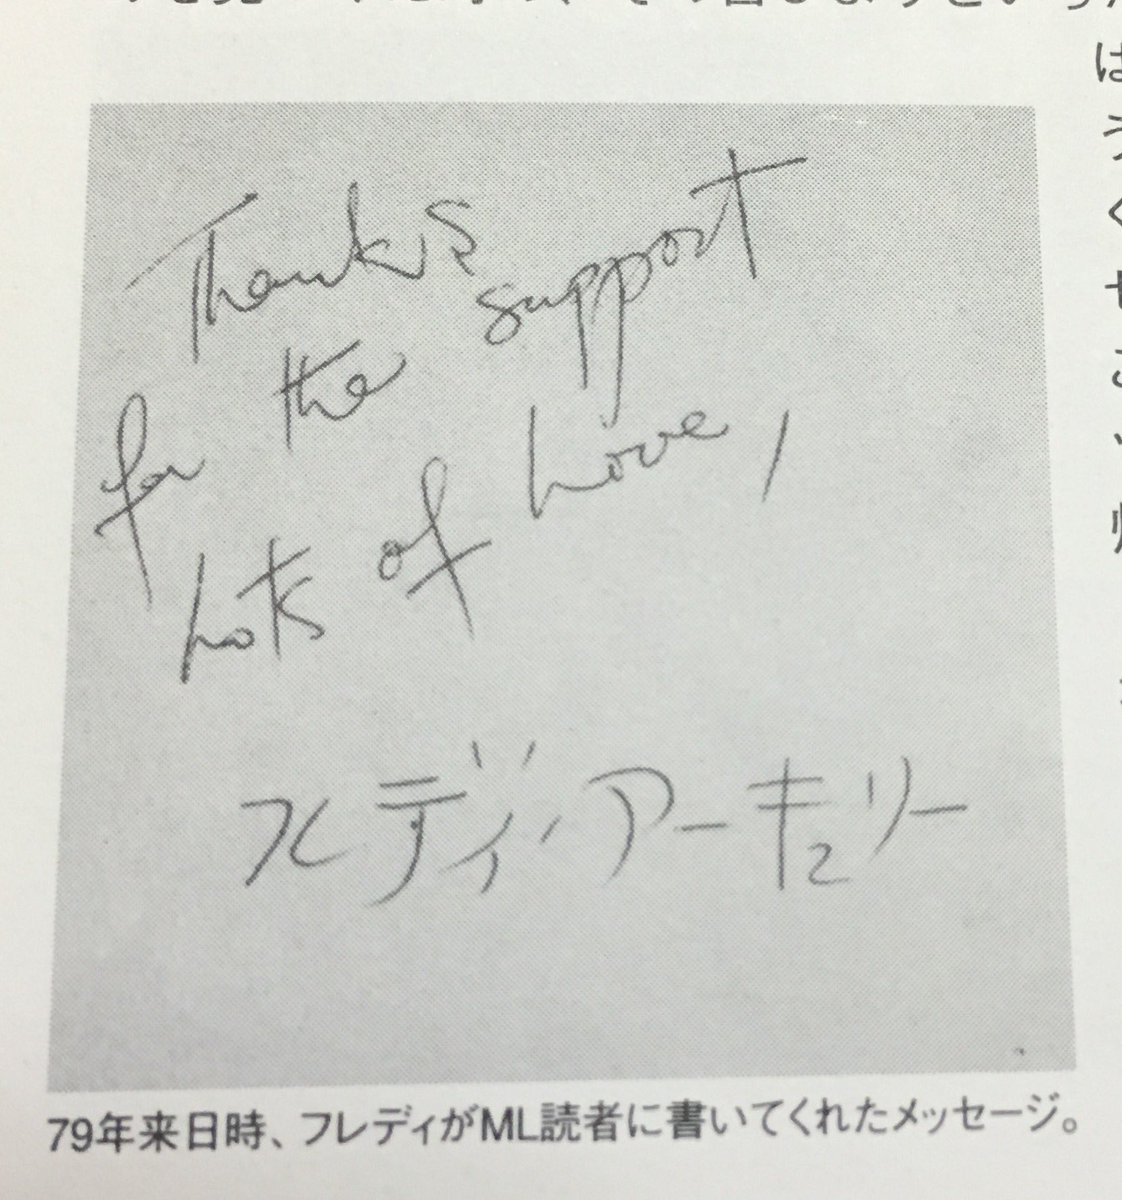 Thanks
for the support
Lots of Love,
フレディ・アーキュリー
79年来日時、フレディがML読者に書いてくれたメッセージ。